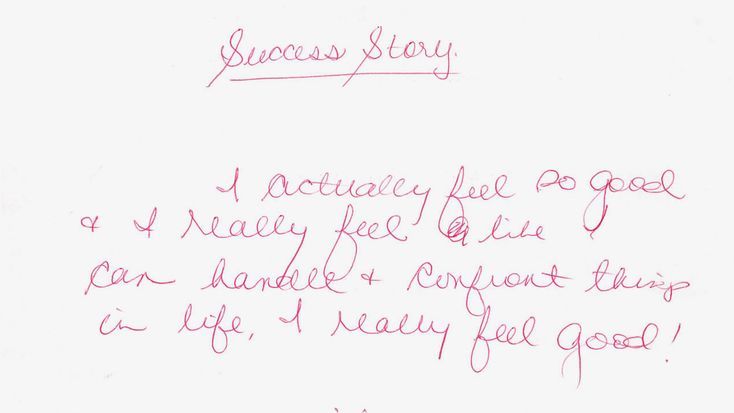 Success Story.
I actually feel so good
& I really feel like I
can handle & confront things
in life, I really feel good!